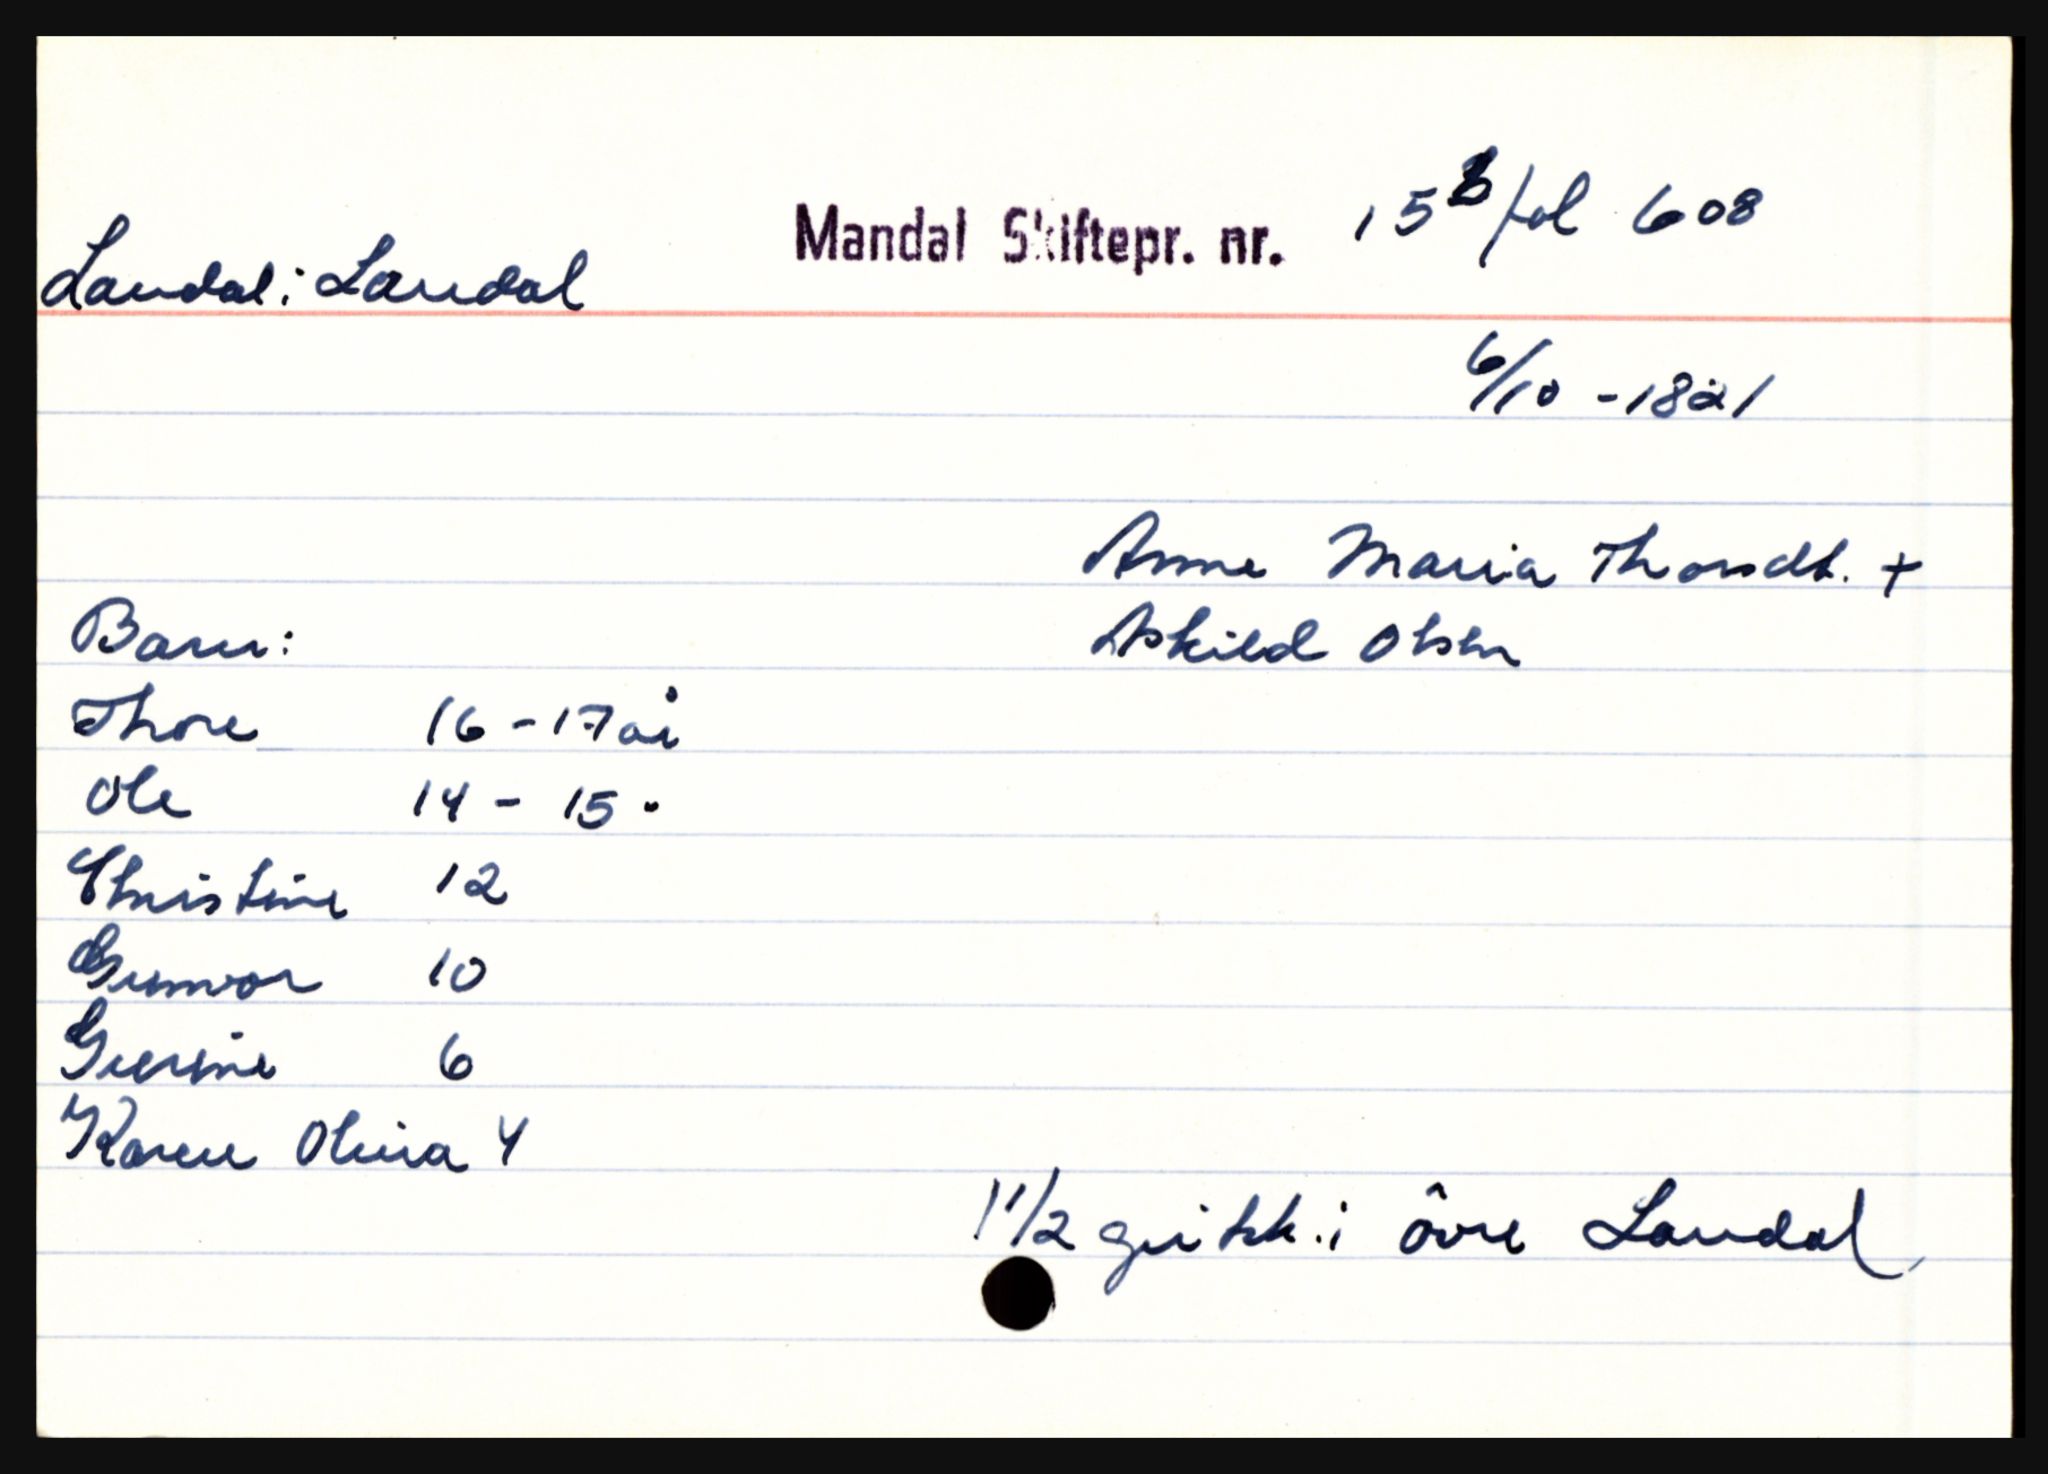 Mandal Skiftepr. nr. 15 B fol 608
Laudal i Laudal
6/10 - 1821
Anne Maria Thorsdt. +
Barn: Askild Olsen
Thore 16 - 17 år
Ole 14 - 15 "
Christine 12
Gunvor 10
Gurine 6
Karen Olivia 4
1 1/2 i øvre Laudal